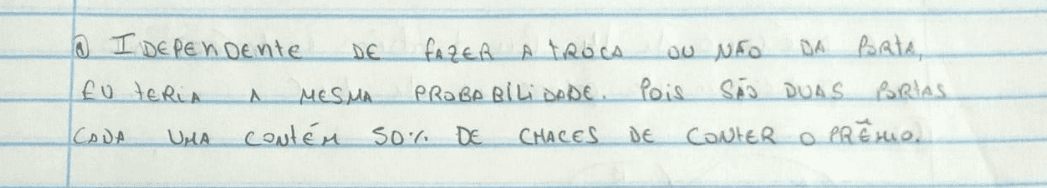 a) IDEPENDENTE DE FAZER A TROCA OU NÃO DA PORTA,
EU TERIA A MESMA PROBABILIDADE. POIS SÃO DUAS PORTAS
CADA UMA CONTÉM 50% DE CHACES DE CONTER O PRÊMIO.